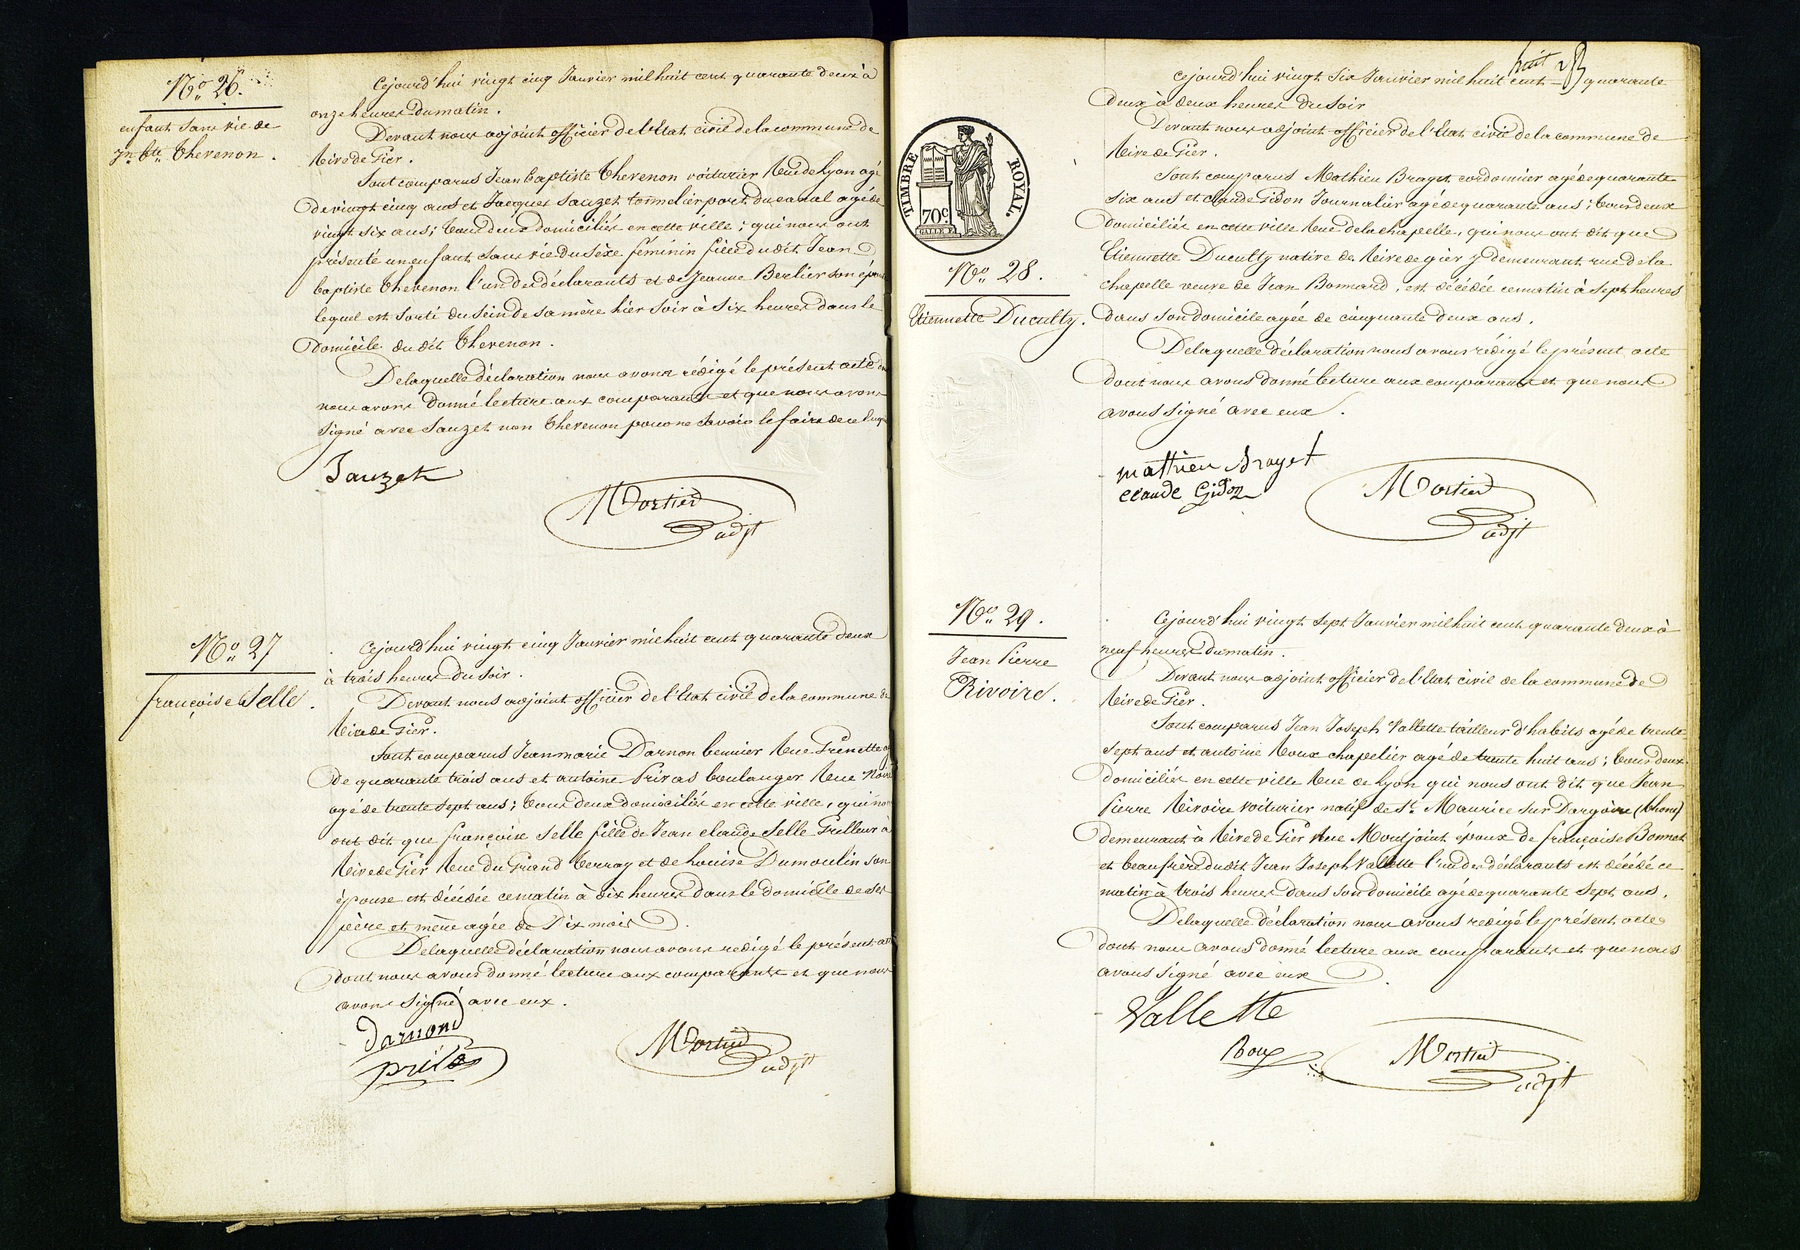 No. 26.
enfant sans vie de
Jn. Bte. Thevenon.
Cejourd'hui vingt cinq Janvier mil huit cent quarante deux à
onze heures du matin.
Devant nous adjoint officier de l'état civil de la commune de
Rive de Gier.
Sont comparus Jean baptiste Thevenon voiturier Rue de Lyon agé
de vingt cinq ans et Jacques Sauzet tonnelier port du canal agé de
vingt six ans; tous deux domiciliés en cette ville; qui nous ont
présenté un enfant sans vie du sèxe féminin fille du dit Jean
baptiste Thevenon l'un des déclarants et de Jeanne Berlier son épouse
lequel est sorti du sein de sa mère hier soir à six heures dans le
domicile du dit Thevenon.
De laquelle déclaration nous avons rédigé le présent acte
nous avons donné lecture aux comparants et que nous avons
signé avec Sauzet non Thevenon pour ne savoir le faire de ce
Sauzet
Mortier
adjt
No. 27
françoise Selle.
Cejourd'hui vingt cinq Janvier mil huit cent quarante deux
à trois heures du soir.
Devant nous adjoint officier de l'état civil de la commune de
Rive de Gier.
Sont comparus Jean marie Darnon bennier Rue Grenette
de quarante trois ans et antoine Privas boulanger Rue
agé de trente sept ans; tous deux domiciliés en cette ville, qui nous
ont dit que françoise Selle fille de Jean claude Selle Grilleur à
Rive de Gier Rue du Grand Verray et de Louise Dumoulin son
épouse est décédée ce matin à dix heures dans le domicile de ses
père et mère agée de Dix mois.
De laquelle déclaration nous avons redigé le présent
dont nous avons donné lecture aux comparants et que nous
avons signé avec eux.
darnon
Mortier
adjt
huit
TIMBRE ROYAL.
70c.
No. 28.
Etiennette Duculty.
Cejourd'hui vingt Six Janvier mil huit cent quarante
deux à deux heures du soir
Devant nous adjoint officier de l'état civil de la commune de
Rive de Gier.
Sont comparus Mathieu Brayet cordonnier agé de quarante
six ans et claude Gidon Journalier agé de quarante ans; tous deux
domiciliés en cette ville Rue de la chapelle, qui nous ont dit que
Etiennette Duculty native de Rive de gier y demeurant rue de la
chapelle veuve de Jean Bonnard, est décédée ce matin à sept heures
dans son domicile agée de cinquante deux ans.
De laquelle déclaration nous avons rédigé le présent acte
dont nous avons donné lecture aux comparants et que nous
avons signé avec eux.
mathieu Brayet
claude Gidon
Mortier
adjt
No. 29.
Jean Pierre
Rivoire.
Cejourd'hui vingt sept Janvier mil huit cent quarante deux à
neuf heures du matin.
Devant nous adjoint officier de l'état civil de la commune de
Rive de Gier.
Sont comparus Jean Joseph Vallette tailleur d'habits agé de trente
sept ans et antoine Roux chapelier agé de trente huit ans; tous deux
domiciliés en cette ville Rue de Lyon qui nous ont dit que Jean
Pierre Rivoire voiturier natif de St. Maurice sur Dargoire (Rhone)
demeurant à Rive de Gier Rue Montjoint époux de françoise Bonnet
et beau frère du dit Jean Joseph Vallette l'un des déclarants est décédé ce
matin à trois heures dans son domicile agé de quarante sept ans.
De laquelle déclaration nous avons redigé le présent acte
dont nous avons donné lecture aux comparants et que nous
avons signé avec eux.
Vallette
Roux
Mortier
adjt